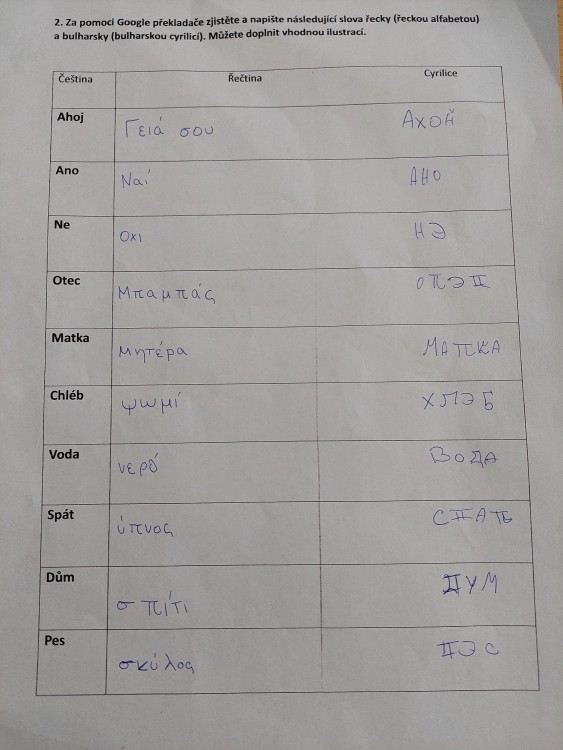 2. Za pomoci Google překladače zjistěte a napište následující slova řecky (řeckou alfabetou)
a bulharsky (bulharskou cyrilicí). Můžete doplnit vhodnou ilustrací.
Čeština Řečtina Cyrilice
Ahoj Γειά σου АХОЙ
Ano Ναί АНО
Ne Οχι НЭ
Otec Μπαμπάς
Matka μητέρα
Chléb ψωμί ХЛЭБ
Voda νερό ВОДА
Spát ύπνος
Dům σπίτι
Pes σκύλος